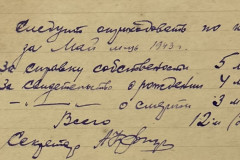 Следует оприходовать по к
за Май месц 1943 г.
за справку собственности 5 м
за свидетельство о рождении 4 м
— " — о смерти 3 м
Всего 12 м
Секретарь